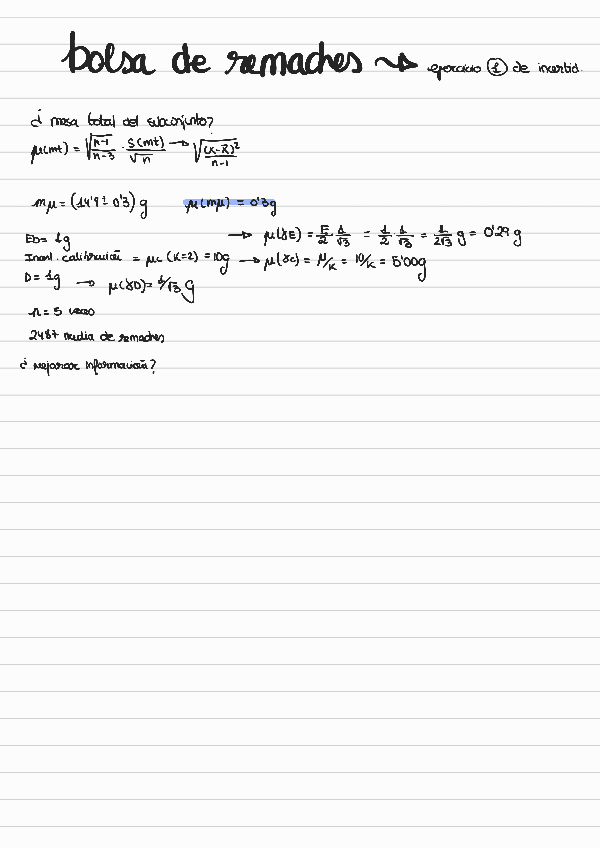 bolsa de remaches ⤳ ejercicio ① de incertid.
¿ masa total del subconjunto?
μ(mt) = √(n-1/n-3) · S(mt)/√n → √((x-x̄)²/n-1)
mμ = (14'9 ± 0'3) g μ(mμ) = 0'3g
Eb = 1g → μ(δE) = E/2 · 1/√3 = 1/2 · 1/√3 = 1/2√3 g = 0'29 g
Incert. calibración = μc (K=2) = 10g → μ(δc) = μ/K = 10/K = 5'00g
D = 1g → μ(δD) = 1/√3 g
n = 5 veces
2487 media de remaches
¿ mejorar información?